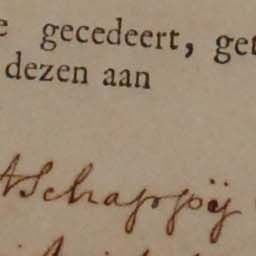 gecedeert, get
dezen aan
tschappÿ